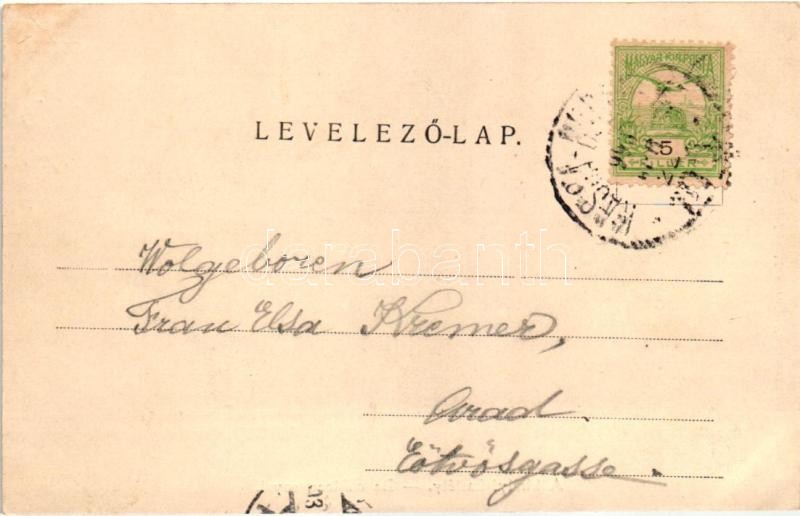 MAGYAR KIR. POSTA
5
FILLÉR
LEVELEZŐ-LAP.
darabanth
Wolgeboren
Frau Elsa Kremer,
Arad.
Eötvösgasse.
03